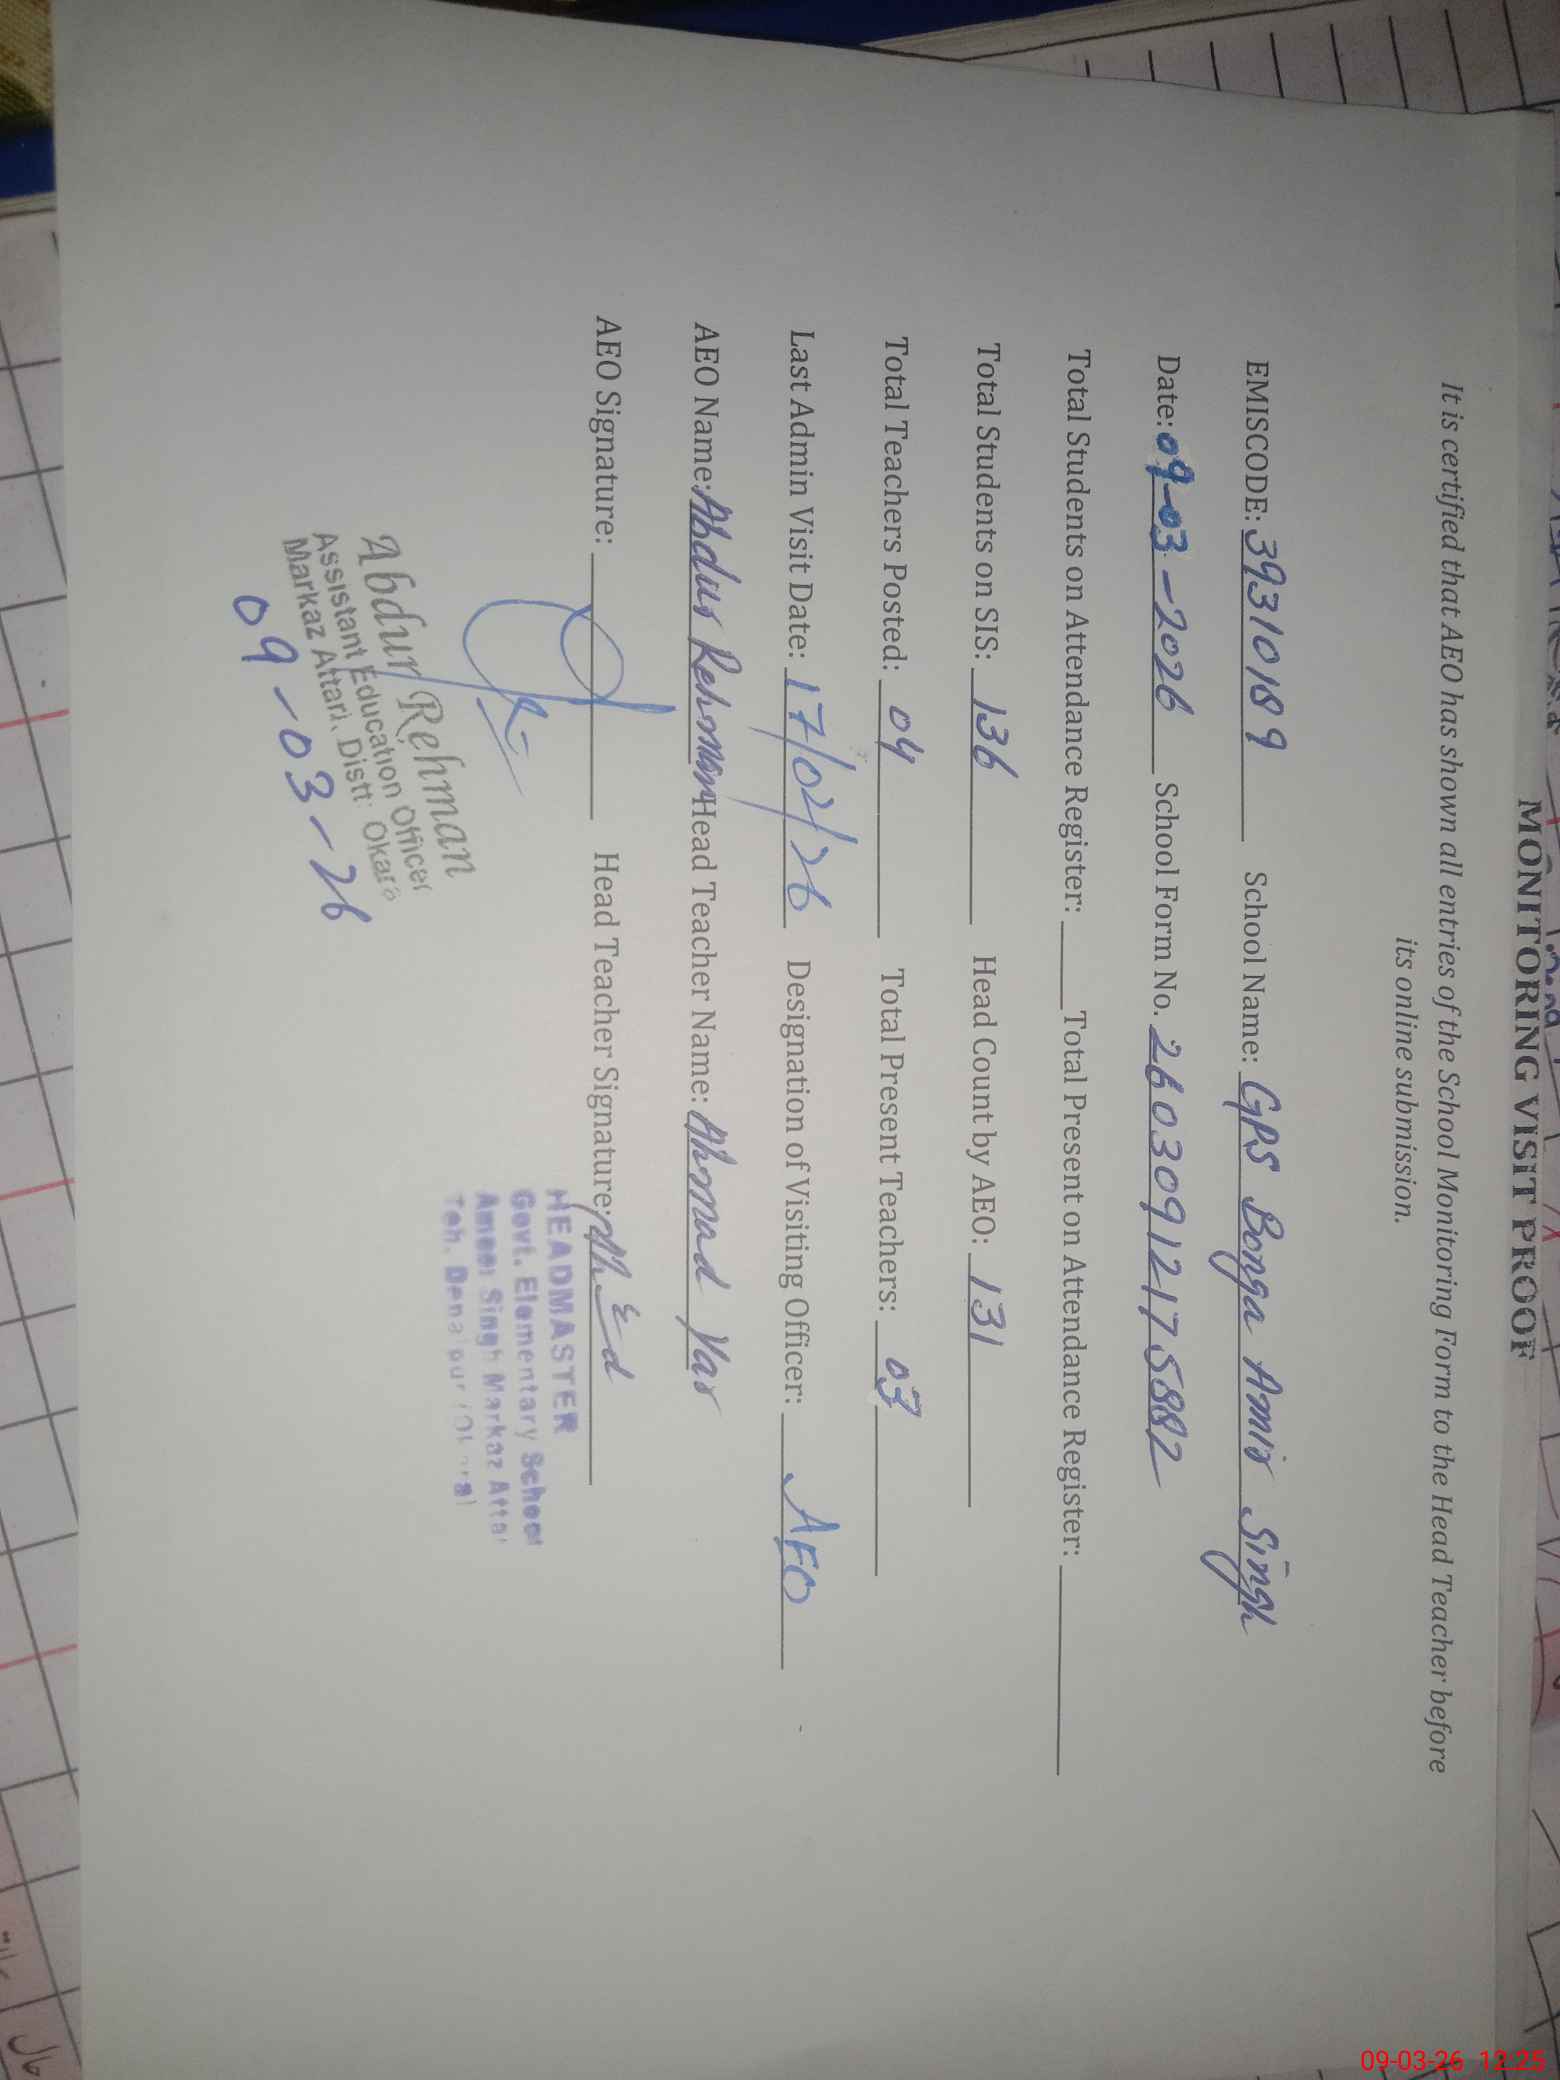 MONITORING VISIT PROOF
It is certified that AEO has shown all entries of the School Monitoring Form to the Head Teacher before
its online submission.
EMISCODE: 39310189 School Name: GPS Bonga Amir Singh
Date: 09-03-2026 School Form No. 2603091217 5882
Total Students on Attendance Register: Total Present on Attendance Register:
Total Students on SIS: 136 Head Count by AEO: 131
Total Teachers Posted: 04 Total Present Teachers: 03
Last Admin Visit Date: 17/02/26 Designation of Visiting Officer: AEO
AEO Name: Abdur Rehman Head Teacher Name: Ahmad Yar
AEO Signature: Head Teacher Signature:
Abdur Rehman
Assistant Education Officer
Markaz Attari, Distt: Okara
09-03-26
HEADMASTER
Govt. Elementary School
Ameer Singh Markaz Attar
Teh. Depalpur
09-03-26 12:25